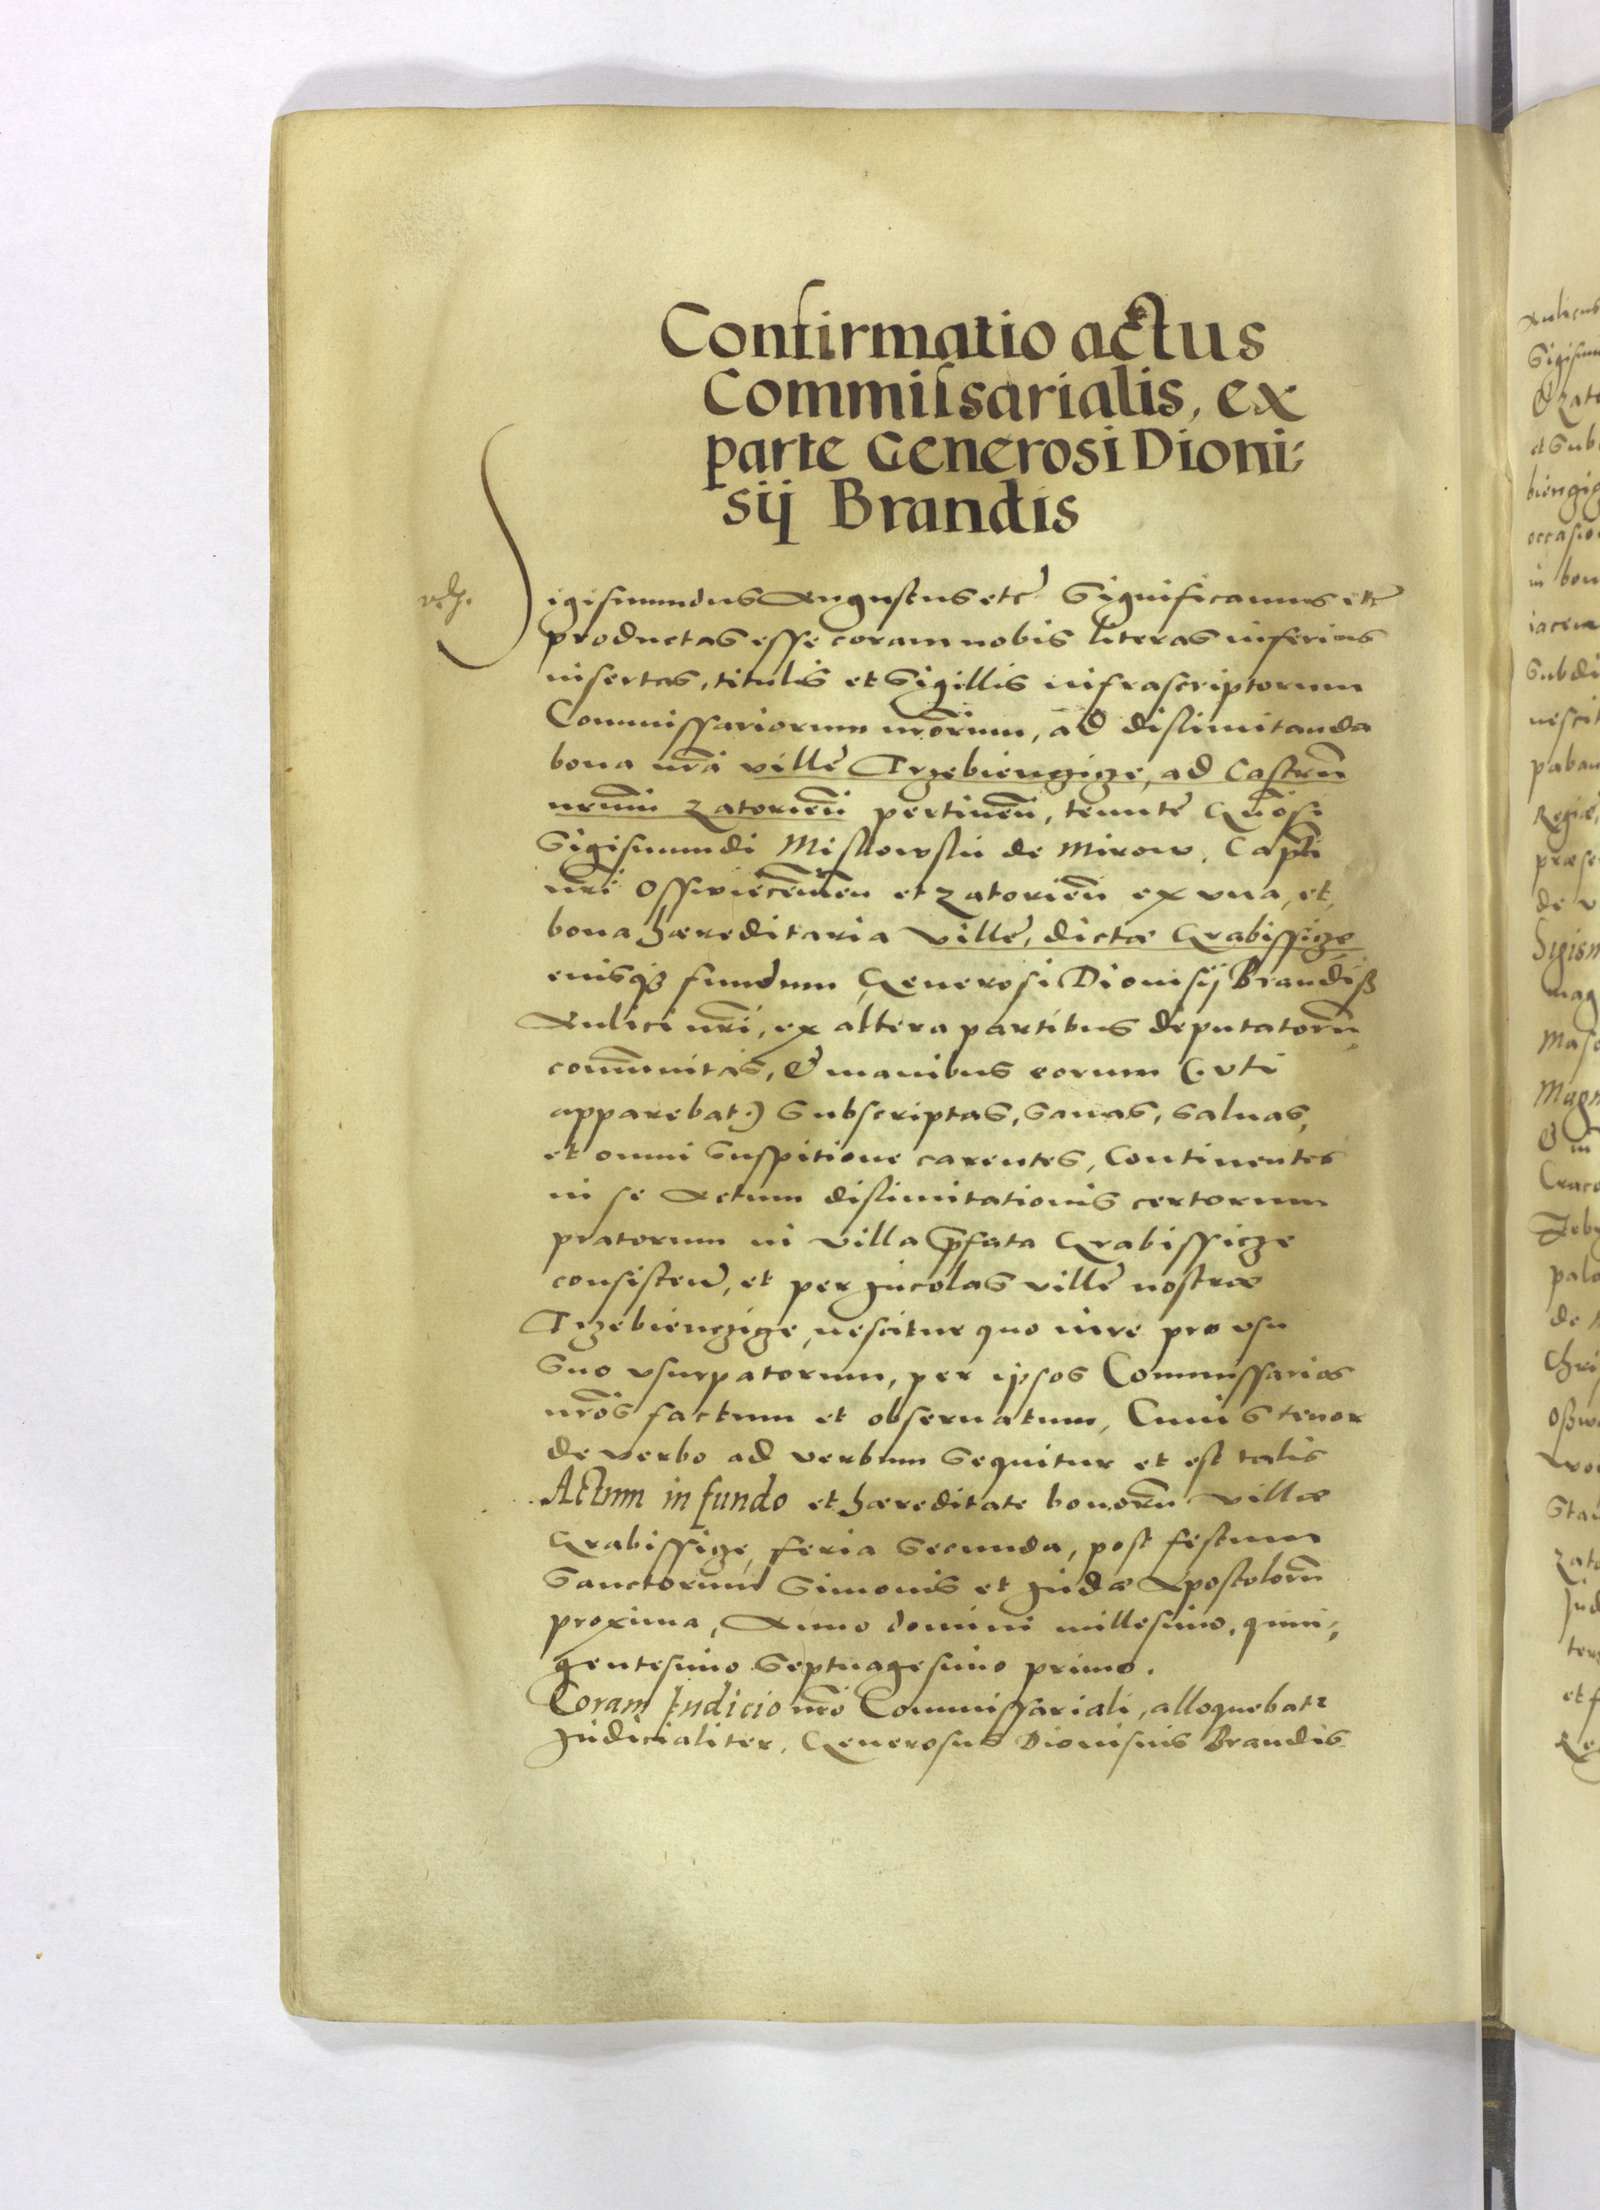 Confirmatio actus
Commissarialis, ex
parte Generosi Dioni:
sij Brandis
Sigismundus Augustus etc̃ Significamus etc̃
productas esse coram nobis literas inferius
insertas, titulis et Sigillis infrascriptorum
Commissariorum nr̃orum, ad dislimitanda
bona nr̃a villæ Trzebienczize, ad Castrũ
nrũm Zatorieñ pertineñ, tenutæ Gñosi
Sigismundi Miskowskii de Mirow, Capti
nr̃i Osswiecimeñ et Zatorieñ ex vna, et
bona hæreditaria villæ, dictæ Grabissize
eiusq3 fundum Generosi Dionisij Brandiß
Aulici nr̃i, ex altera partibus deputatorũ
com̃unitas, & manibus eorum (vti
apparebat) Subscriptas, Sanas, Saluas,
et omni Suspitione carentes, Continentes
in se Actum dislimitationis certorum
pratorum in villa p̃fata Grabissicze
consisteñ, et per Incolas villæ nostræ
Trzebienczize, nescitur quo iure pro vsu
Suo vsurpatorum, per ipsos Commissarios
nr̃os factum et obseruatum, Cuius tenor
de verbo ad verbum Sequitur et est talis
Actum in fundo et hæreditate bonorũ villæ
Grabissize, feria Secunda, post festum
Sanctorum Simonis et Iudæ Apostolorũ
proxima, Anno domini millesimo, quin:
gentesimo Septuagesimo primo.
Coram Iudicio nr̃o Commissariali, alloquebatr
Iudicialiter, Generosus Dionisius Brandis